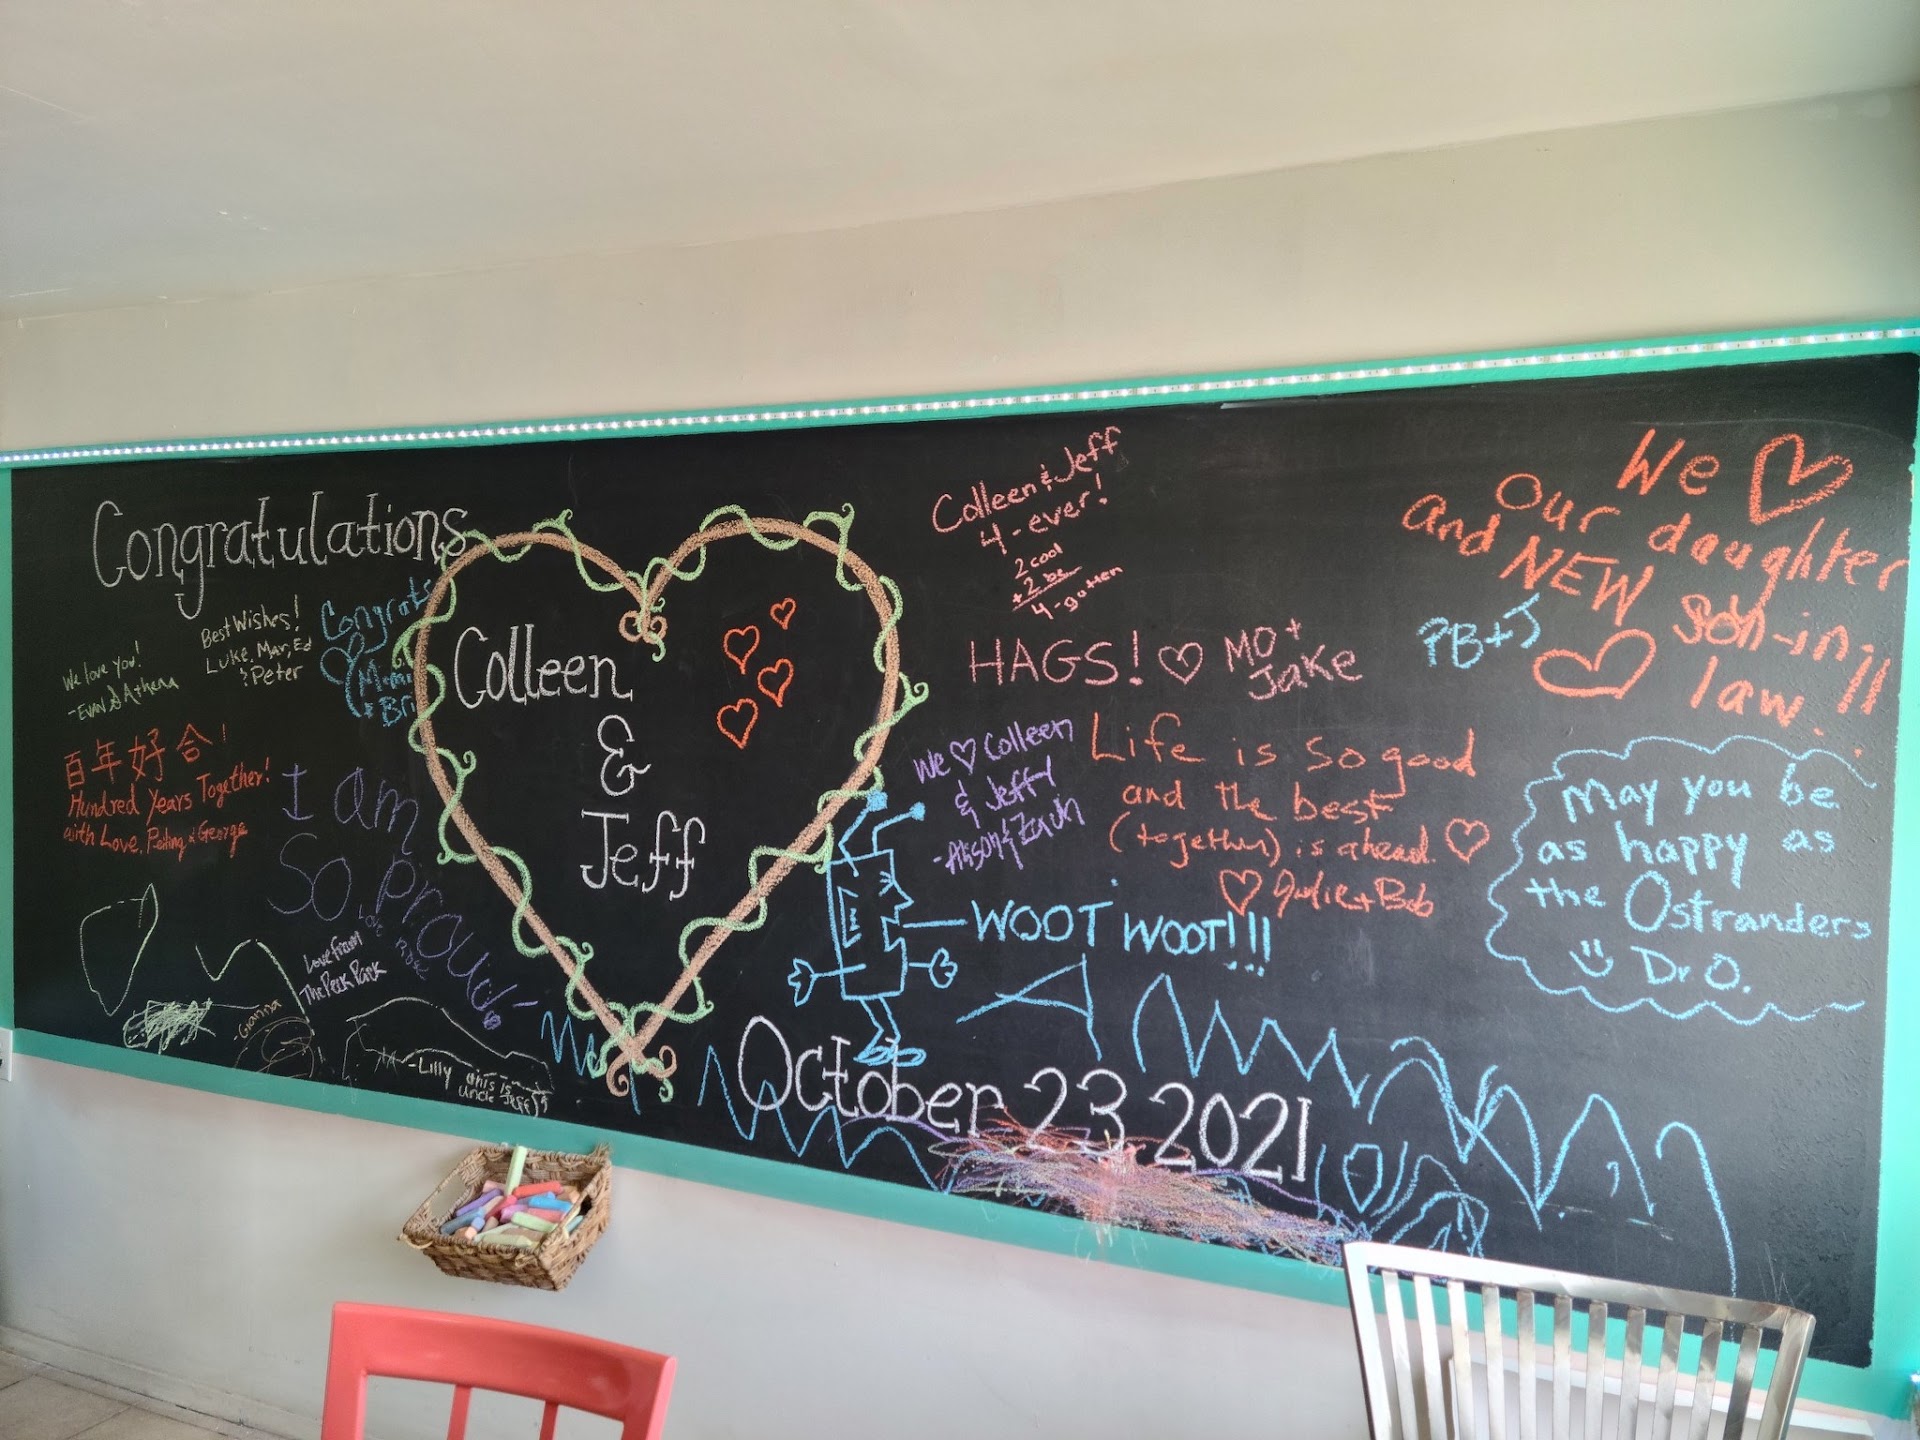 Congratulations
Best Wishes!
Luke, Mar, Ed
& Peter
Congrats
Mimi
& Bri
We love you!
-Evan & Athena
百年好合!
Hundred Years Together!
with Love, Peiling & George
I am
So proud
Love
Rose
Love from
The Peck Pack
-Gianna
-Lilly
this is
uncle Jeff
Colleen
&
Jeff
Colleen & Jeff
4-ever!
2 cool
+2 be
4-gotten
HAGS! ♡ Mo +
Jake
We ♡ Colleen
& Jeffy
-Alison &
Life is so good
and the best
(together) is ahead. ♡
♡ Julie + Bob
WOOT WOOT!!!
We ♡
Our daughter
and NEW Son-in
law!!
PB+J
May you be
as happy as
the Ostranders
Dr O.
October 23, 2021